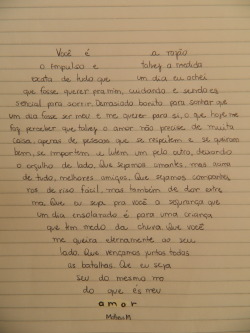 Você é a razão
o impulso e talvez a medida
exata de tudo que um dia eu achei
que fosse querer pra mim, cuidando e sendo es
sencial para sorrir. Demasiado bonito para sonhar que
um dia fosse ser meu e me querer para si, o que hoje me
faz perceber que talvez o amor não precise de muita
coisa, apenas de pessoas que se respeitem e se queiram
bem, se importem e lutem um pelo outro, deixando
o orgulho de lado. Que sejamos amantes, mas acima
de tudo, melhores amigos. Que sejamos companhei
ros de riso fácil, mas também de dor extre
ma. Que eu seja pra você a segurança que
um dia ensolarado é para uma criança
que tem medo da chuva. Que você
me queira eternamente ao seu
lado. Que vençamos juntos todas
as batalhas. Que eu seja
seu do mesmo mo
do que és meu
amor
Mellina M.